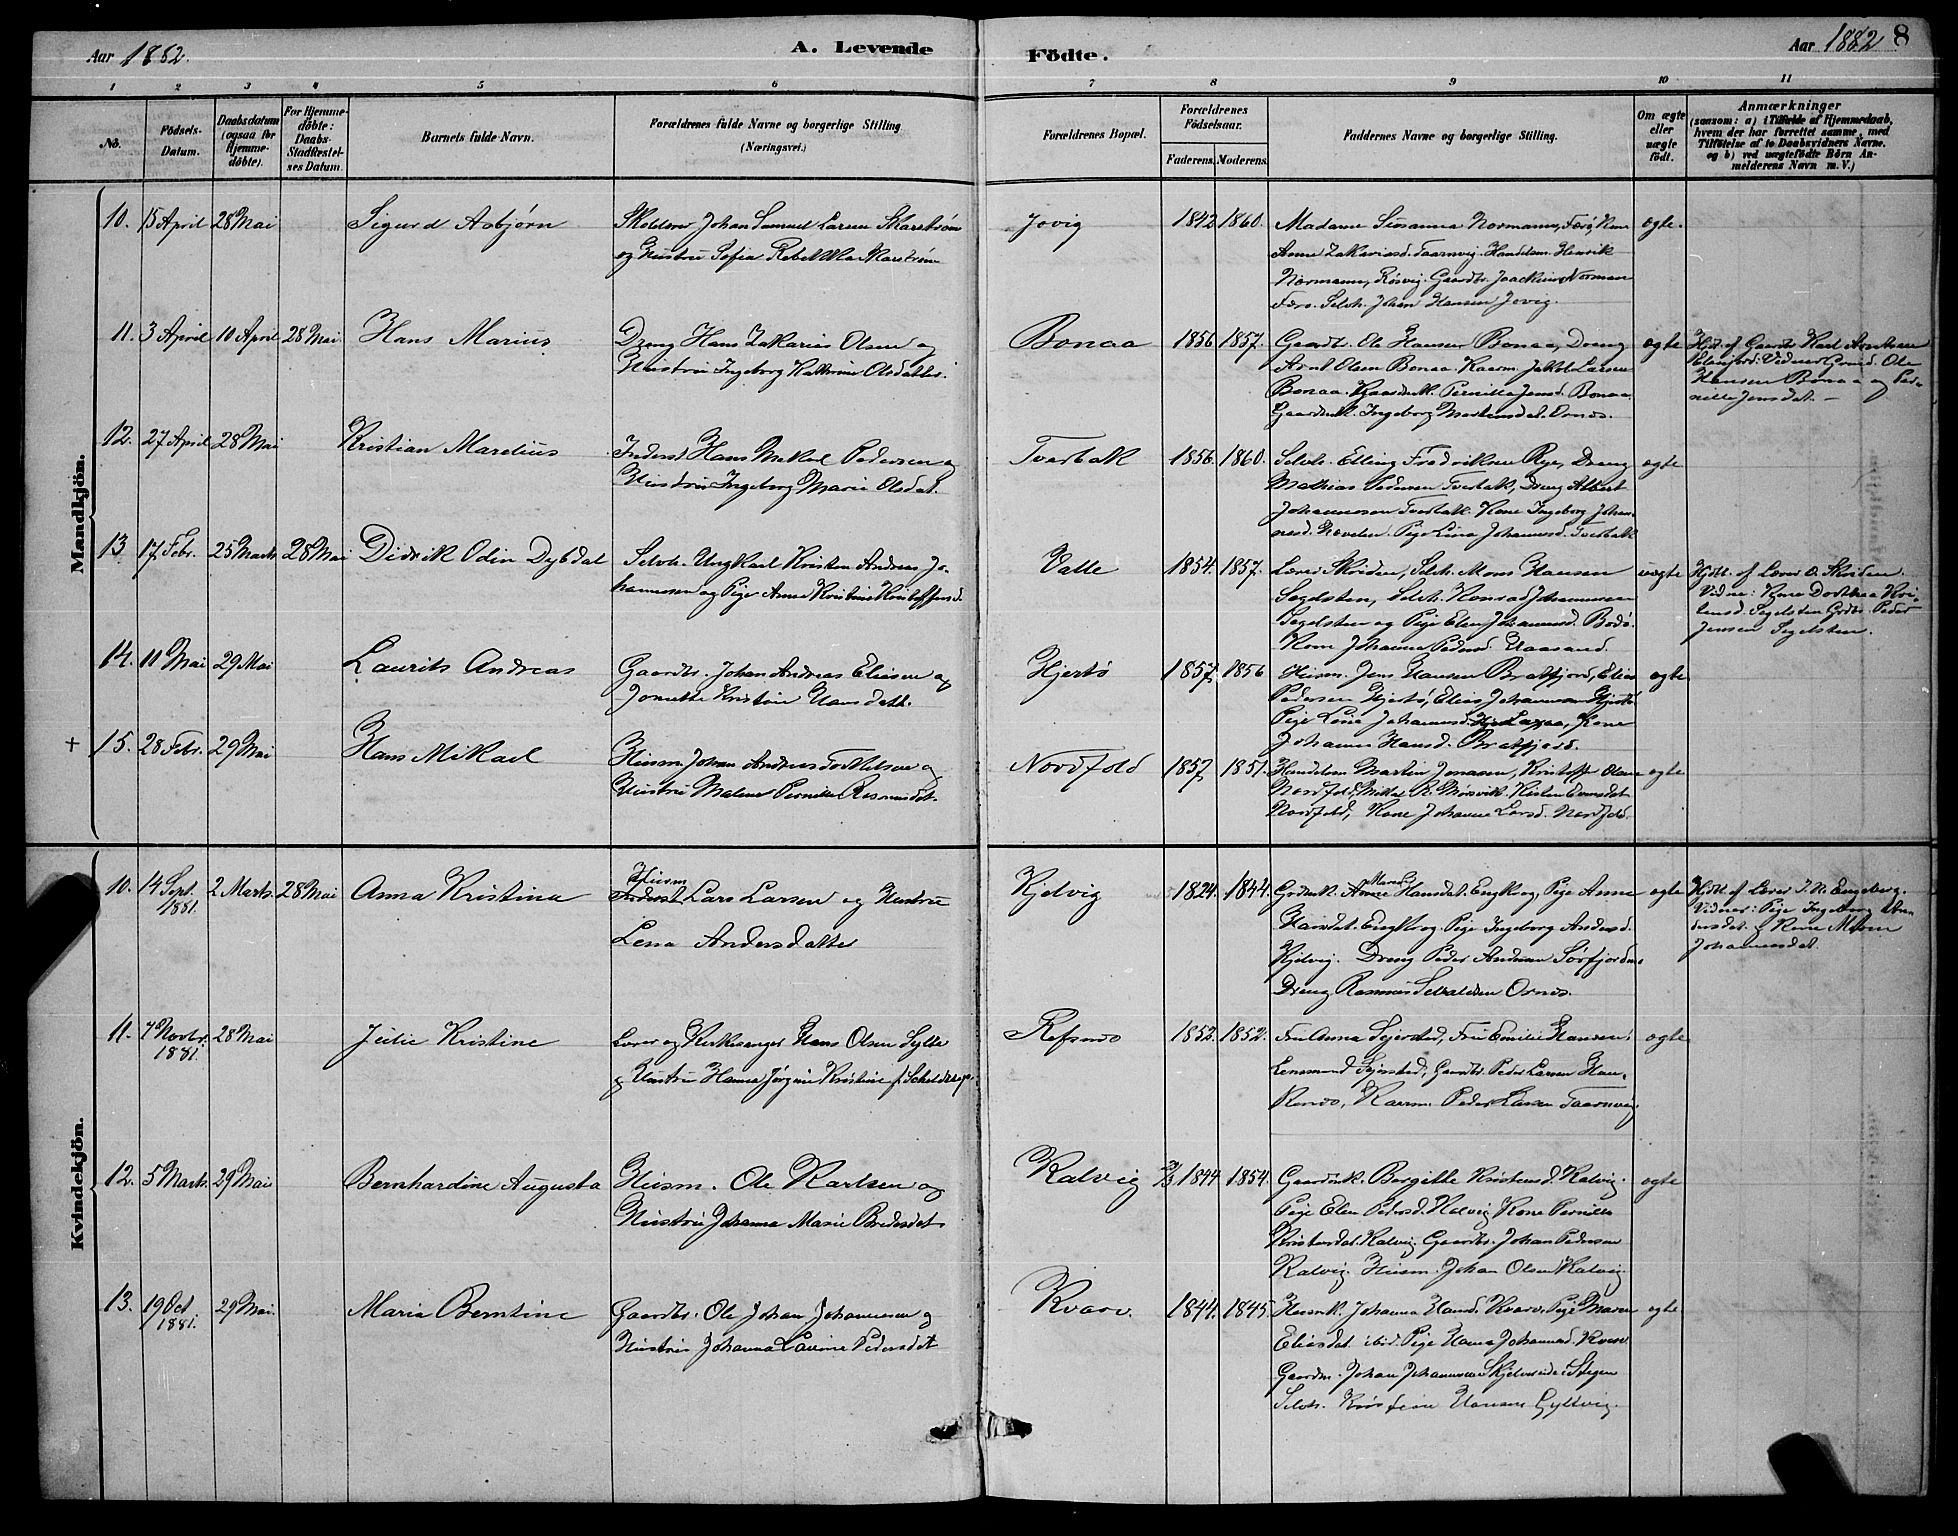 Aar 1882.
A. Levende
Födte.
Aar 1882
8
1 2 3 4 5 6 7 8 9 10 11
No.
Födsels-
Datum.
Daabsdatum
(ogsaa for
Hjemme-
döbte).
For Hjemme-
döbte:
Daabs-
Stadfæstel-
ses Datum.
Barnets fulde Navn.
Forældrenes fulde Navne og borgerlige Stilling
(Næringsvei.)
Forældrenes Bopæl.
Forældrenes
Födselsaar.
Faderens.
Moderens.
Faddernes Navne og borgerlige Stilling.
Om ægte
eller
uægte
födt.
Anmærkninger
(saasom: a) i Tilfælde af Hjemmedaab,
hvem der har forrettet samme, med
Tilföielse af to Daabsvidners Navne.
og b) ved uægtefödte Börn An-
melderens Navn m. V.)
Mandkjön.
10. 15 April 28 Mai
Sigurd Asbjørn
Johan Samuel Larsen
og Hustru Sofia
Jovig
1842 1860.
Madame Susanna Normann, Færø, Kone
Anne Zakariasd. Taarnvig. Handelsm. Henrik
Normann, Røsvig. Gaardbr. Joackim Norman
Færø. Selvh. Johan Hansen Jovig.
ægte.
11. 3 April 10 April 28 Mai
Hans Marius
Dreng Hans Zakarias Olsen og
Hustru Ingeborg Katrine Olsdatter.
Bonaa
1856 1857.
Gaardb. Ole Hansen Bonaa, Dreng
Arnt Olsen Bonaa Kaarm. Jakob Larsen
Bonaa. Gaardmk. Pernille Jensd. Bonaa
Gaardmk. Ingeborg Martinsdat. Ornes.
ægte
Hjdt. af Gaardb. Karl Arntsen
Vidner Gmd. Ole
Hansen Bonaa og Per-
nelle Jensdat. —
12. 27 April 28 Mai
Kristian Marelius
Inderst Hans Mikal Pedersen og
Hustru Ingeborg Marie Olsdat.
Tverbak
1856. 1860.
Selvh. Elling Fredriksen Rye, Dreng
Mathias Pedersen Tverbak, Dreng Albert
Johannesen Tverbak. Kone Ingeborg Johan-
nesd. Pige Lina Johannesd. Tverbak
ægte
13 17 Febr. 25 Marts 28 Mai
Didrik Odin Dybdal
Selvh. Ungkarl Kristen Andreas Jo-
hannesen og Pige Anne Kristine Kristoffersd.
Valle
1854. 1857.
Lærer Skriden, Selvh. Mons Hansen
Segelsten, Selvh. Konrad Johannesen
Segelsten og Pige Elen Johannesd. Bodø.
Kone Johanna Pedersd.
uægte
Hjdt. af Lærer O. Skriden.
Vidner: Kone Dorthea Kri-
stensd. Segelsten Grdbr. Peder
Jensen Segelsten.
14. 11 Mai 29 Mai
Laurits Andreas
Gaardbr. Johan Andreas Eliasen og
Jonette Kristine Hansdatt.
Hjertø
1857. 1856
Husm. Jens Hansen Bratfjord, Elias
Pedersen Hjertø, Elias Johannesen Hjertø
Pige Lina Johannesd. Laxaa, Kone
Johanna Hansd. Bratfjord.
ægte
+ 15. 28 Febr. 29 Mai
Hans Mikael
Husm. Johan Andreas Torkilsen og
Hustru Malene Pernille Rasmusdat.
Nordfold
1857 1851.
Handelsm Martin Jonassen, Kristoff. Olsen
Nordfold, Mikal R. Mørsvik. Kirsten Evensdat
Nordfold, Kone Johanna Larsd. Nordfold.
ægte
Kvindekjön.
10. 14 Sept. 1881. 2 Marts. 28 Mai
Anna Kristina
Husm
Inderst Lars Larsen og Hustru
Lena Andersdatter
Kjelvig
1824. 1844.
Maren
Grdmk. Anne Hansdat. Engkrog, Pige Anne
Hansdat. Engkrog. Pige Ingeborg Andersd.
Kjelvig. Dreng Peder Andersen Sørfjorden
Dreng Rasmus Ornes.
ægte
Hjdt. af Lærer J. N. Engeberg.
Vidner: Pige Ingeborg An-
dersdat. & Kone
Johannesdat.
11. 7 Novbr. 1881. 28 Mai
Julie Kristine
Lærer og Kirkesanger Hans Olsen Sylte
og Hustru Hanna Jørgine Kristine f.
Røfsnes
1852. 1852.
Fru Anna Sejersted, Fru Emilie Hansen,
Lensmand Sejersted, Gaardbr. Peder Larsen
Kaarm. Peder Larsen Taarnvig.
ægte
12. 5 Marts. 29 Mai
Bernhardine Augusta
Husm. Ole Karlsen og
Hustru Johanna Marie Bredesdat.
Kalvig
1844 1854.
Gaardmk. Bergitte Kristensd. Kalvig.
Pige Elen Pedersd. Kalvig Kone Pernille
Kristensdat. Kalvig. Gaardbr. Johan Pedersen
Kalvig. Husm. Johan Olsen Kalvig.
ægte
13. 19 Oct. 1881. 29 Mai.
Maria Berntine
Gaardbr. Ole Johan Johannesen og
Hustru Johanna Lavine Pedersdat
Kvarv.
1844. 1845.
Husmk. Johanna Hansd. Kvarv. Pige Maren
Eliasdat. ibid. Pige Hanna Johannesd. Kvarv
Gaardm. Johan Johannesen Skjelvereide i Stegen
Selvh. Kristian Hansen Gyltvig.
ægte